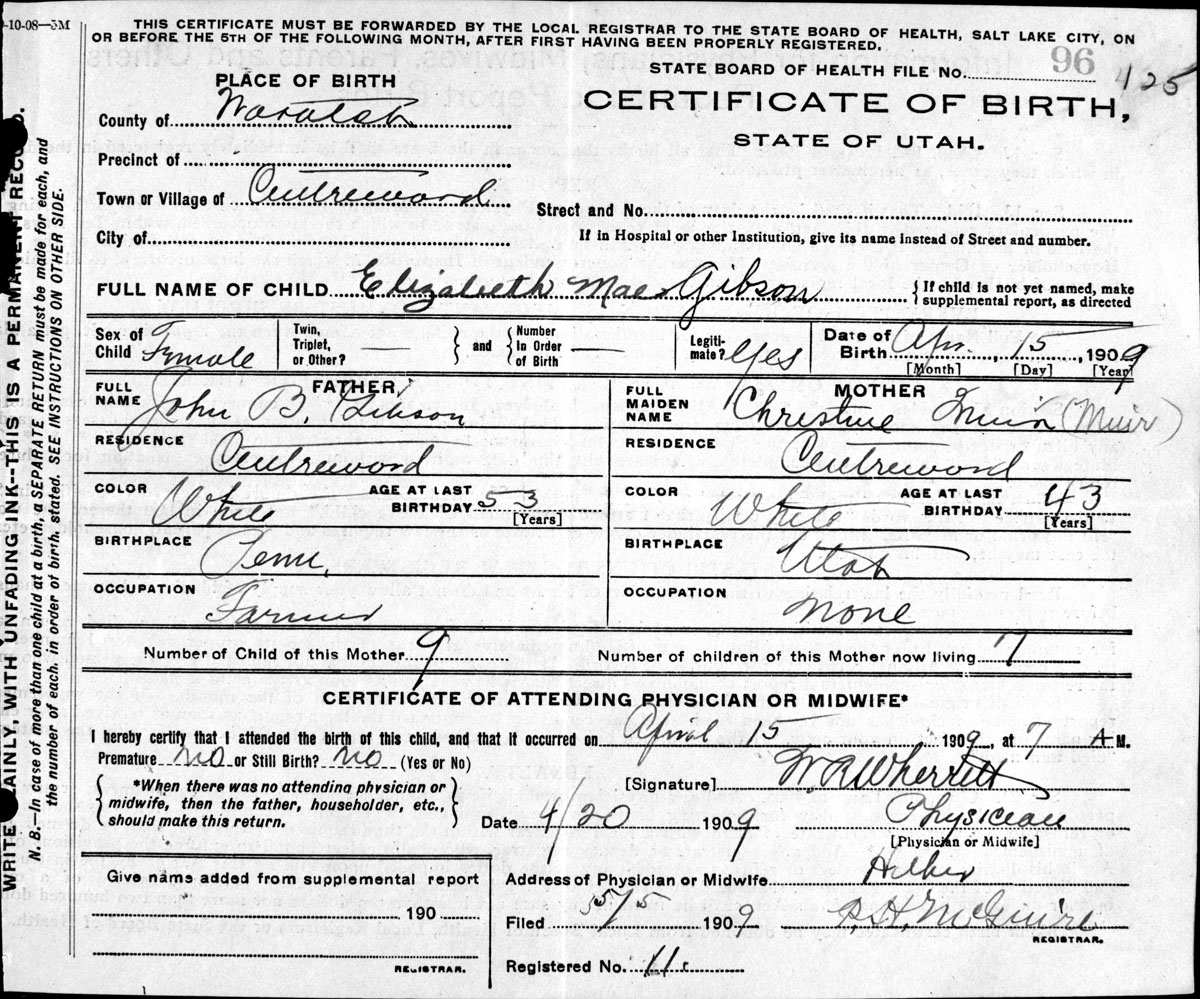 -10-08—5M
THIS CERTIFICATE MUST BE FORWARDED BY THE LOCAL REGISTRAR TO THE STATE BOARD OF HEALTH, SALT LAKE CITY, ON
OR BEFORE THE 5TH OF THE FOLLOWING MONTH, AFTER FIRST HAVING BEEN PROPERLY REGISTERED.
STATE BOARD OF HEALTH FILE No. 96 425
CERTIFICATE OF BIRTH,
STATE OF UTAH.
PLACE OF BIRTH
County of Wasatch
Precinct of
Town or Village of Centreword
Street and No.
City of
If in Hospital or other Institution, give its name instead of Street and number.
FULL NAME OF CHILD Elizabeth Mae Gibson { If child is not yet named, make
supplemental report, as directed
Sex of Child Female
Twin, Triplet, or Other? —
} and { Number In Order of Birth —
Legiti-mate? Yes
Date of Birth Apr. 15, 1909
[Month] [Day] [Year]
FATHER
FULL NAME John B. Gibson
RESIDENCE Centreword
COLOR White AGE AT LAST BIRTHDAY 53
[Years]
BIRTHPLACE Penn.
OCCUPATION Farmer
MOTHER
FULL MAIDEN NAME Christine Muir (Muir)
RESIDENCE Centreword
COLOR White AGE AT LAST BIRTHDAY 43
[Years]
BIRTHPLACE Utah
OCCUPATION None
Number of Child of this Mother 9
Number of children of this Mother now living 7
CERTIFICATE OF ATTENDING PHYSICIAN OR MIDWIFE*
I hereby certify that I attended the birth of this child, and that it occurred on April 15 1909, at 7 A M.
Premature no or Still Birth? no (Yes or No)
[Signature] W R Wherritt
{ *When there was no attending physician or
midwife, then the father, householder, etc.,
should make this return. }
Date 4/20 1909 Physician
[Physician or Midwife]
Give name added from supplemental report
190
REGISTRAR.
Address of Physician or Midwife Heber
Filed 5/5 1909 P.H. McGuire
REGISTRAR.
Registered No. 11.
WRITE PLAINLY, WITH UNFADING INK--THIS IS A PERMANENT RECORD.
N. B.—In case of more than one child at a birth, a SEPARATE RETURN must be made for each, and
the number of each, in order of birth, stated. SEE INSTRUCTIONS ON OTHER SIDE.